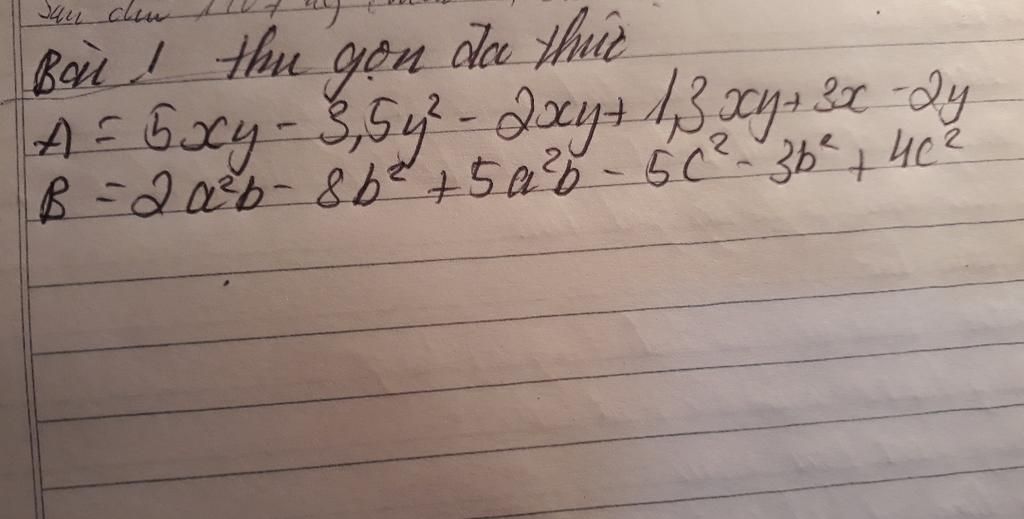 Bài 1 thu gọn đa thức
A = 5xy - 3,5y² - 2xy + 1,3xy + 3x - 2y
B = 2a²b - 8b² + 5a²b - 5c² - 3b² + 4c²